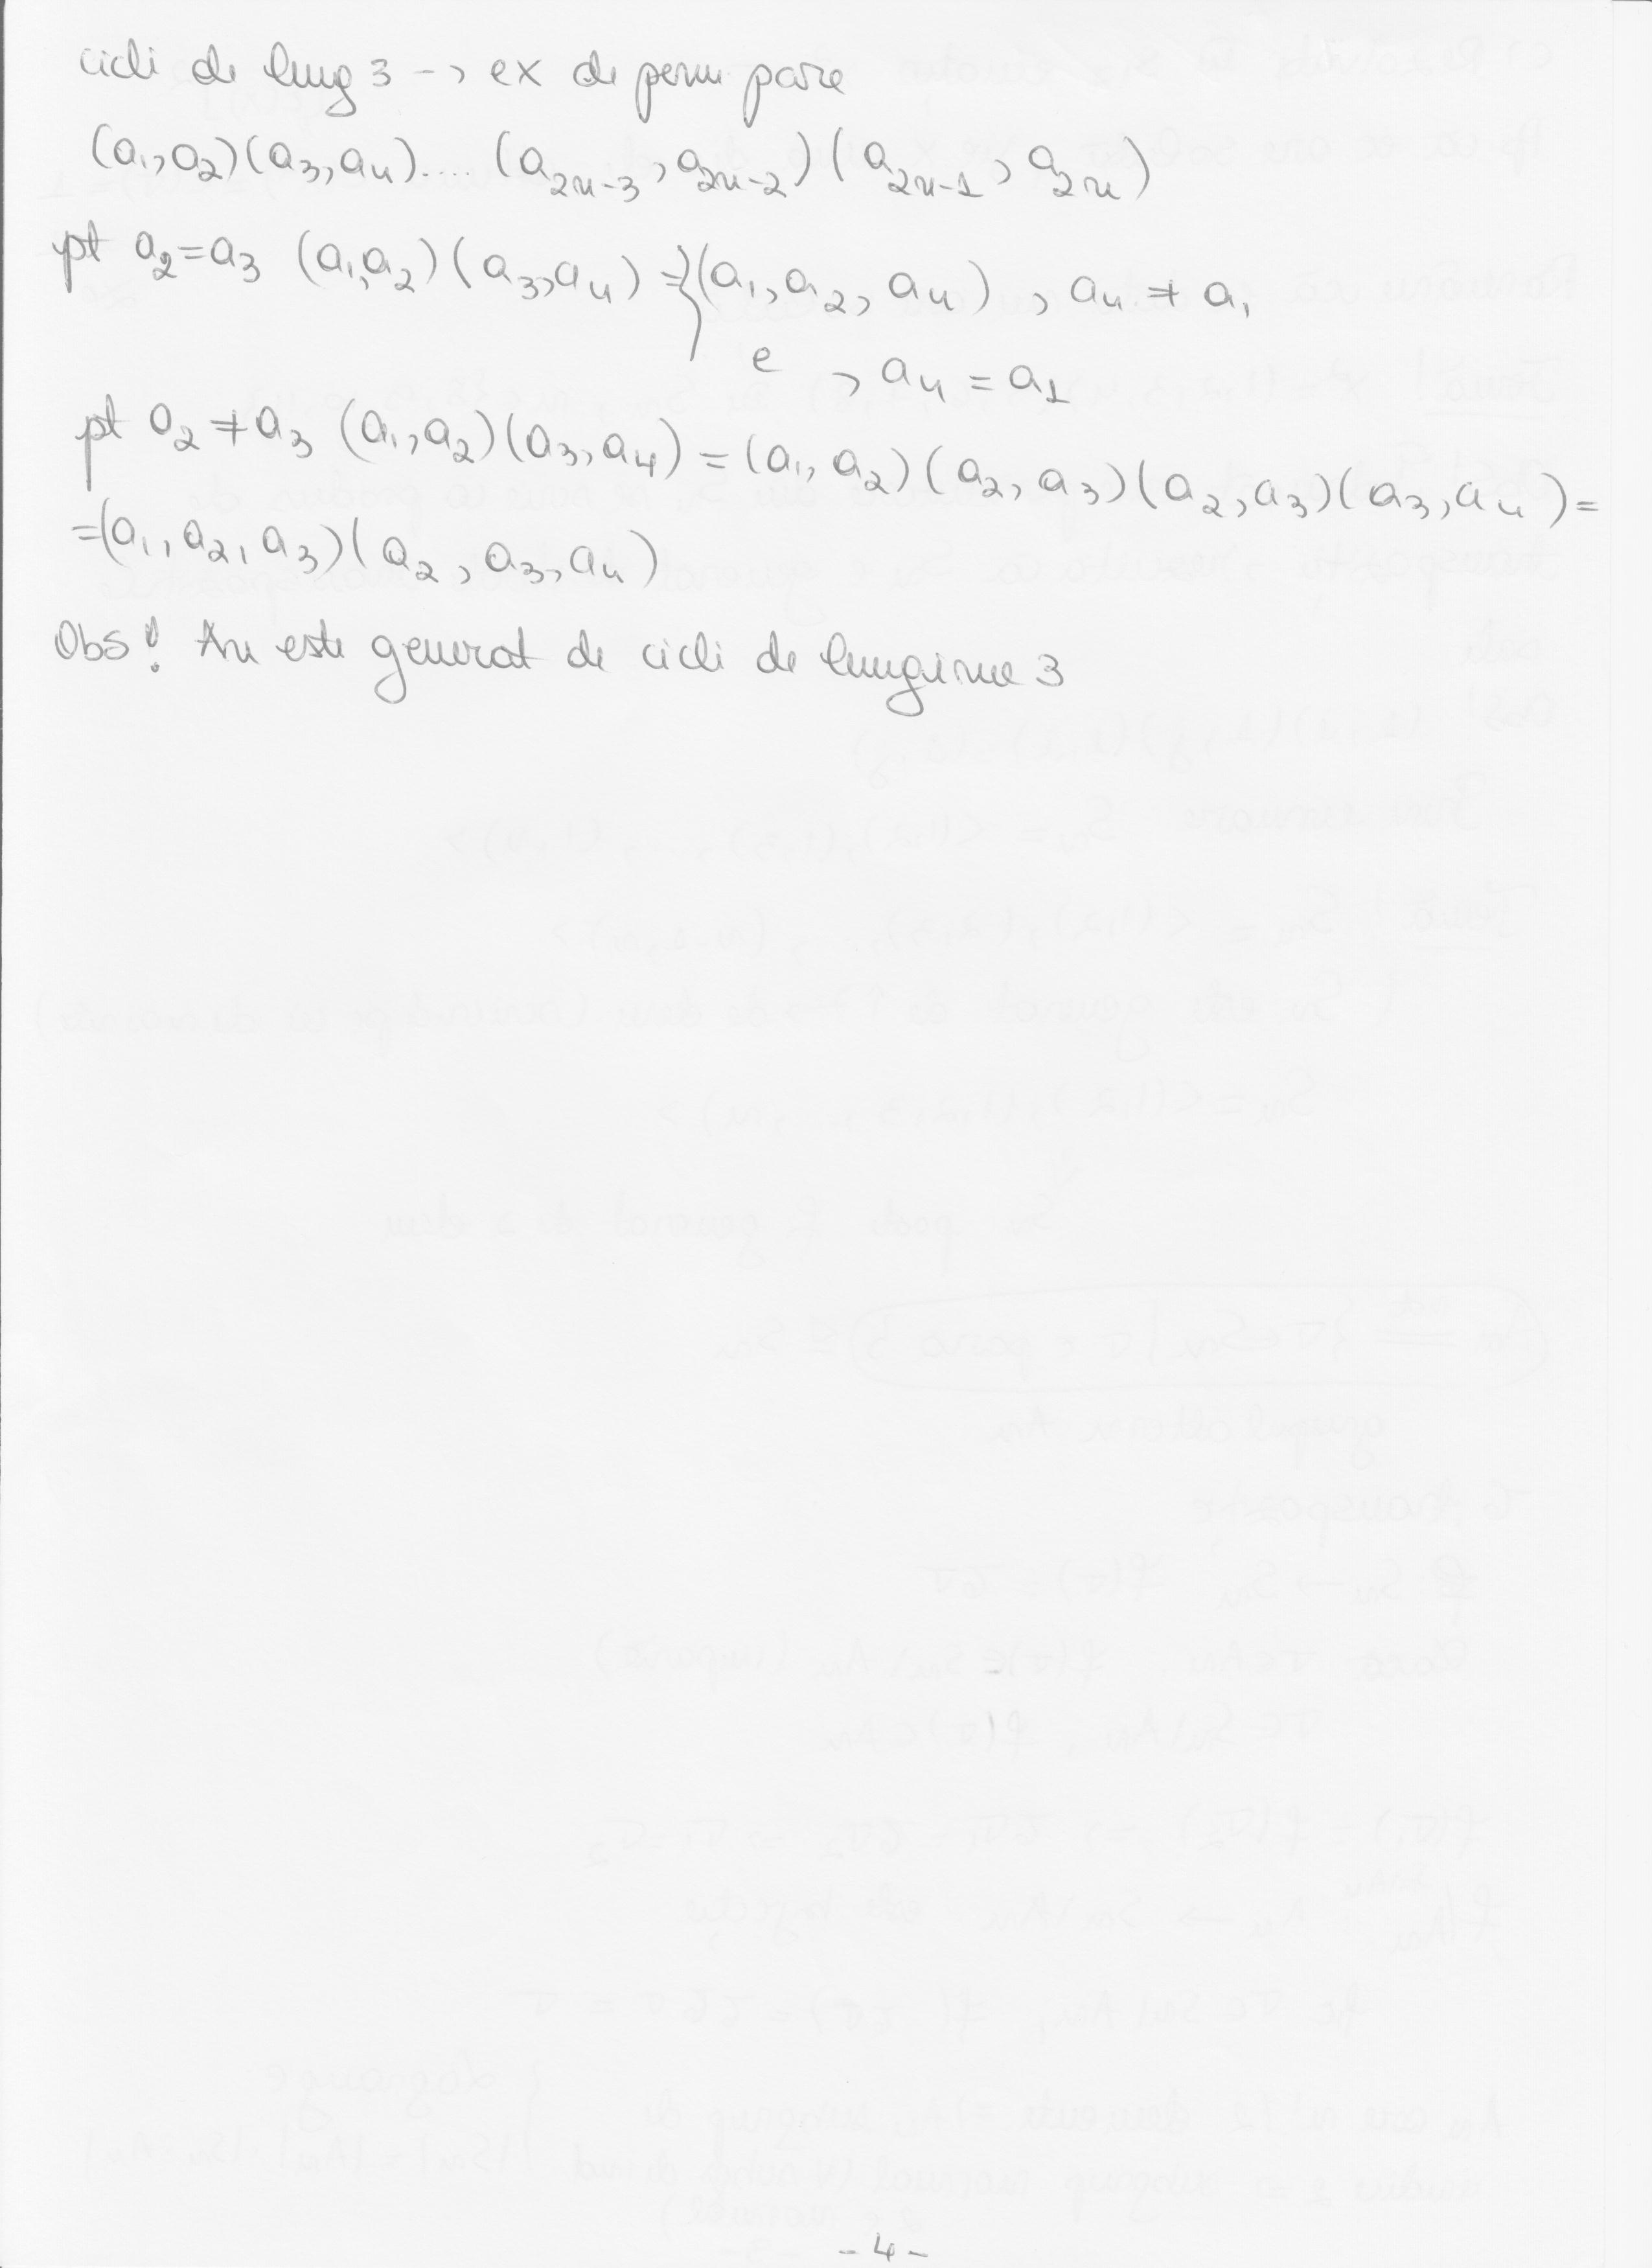 cicli de lung 3 -> ex de perm pare
(a₁,a₂)(a₃,a₄).... (a₂ₙ₋₃,a₂ₙ₋₂)(a₂ₙ₋₁,a₂ₙ)
pt a₂=a₃ (a₁,a₂)(a₃,a₄) = { (a₁,a₂,a₄) , a₄ ≠ a₁
e , a₄ = a₁
pt a₂ ≠ a₃ (a₁,a₂)(a₃,a₄) = (a₁,a₂)(a₂,a₃)(a₂,a₃)(a₃,a₄) =
=(a₁,a₂,a₃)(a₂,a₃,a₄)
Obs! An este generat de cicli de lungime 3
-4-